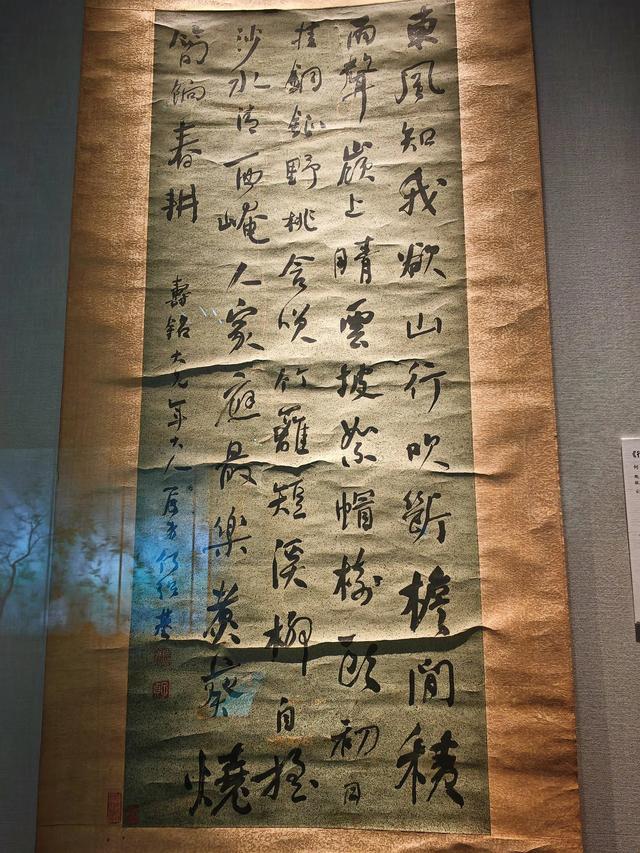 東風知我欲山行吹斷檐間積
雨聲嶺上晴雲披絮帽樹頭初日
挂銅鉦野桃含咲竹籬短溪柳自搖
沙水清西崦人家應最樂煮葵燒
筍餉春耕
壽銘大兄年大人 何紹基
《行